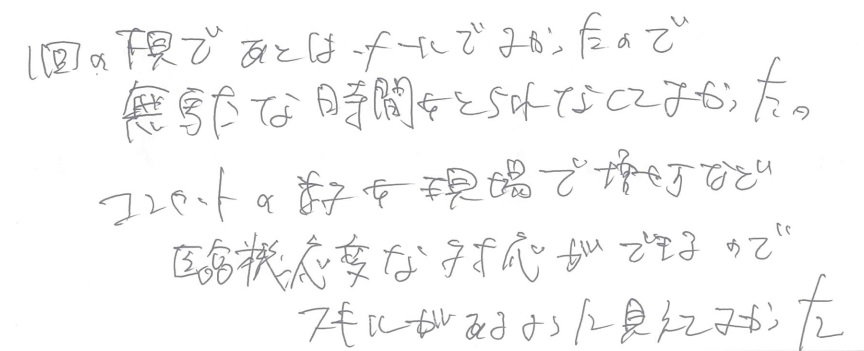 1回の下見であとはメールでよかったので
無駄な時間をとられなくてよかった。
コンセントの数を現場で増やすなど
臨機応変な対応ができるので
スキルがあるように見えてよかった